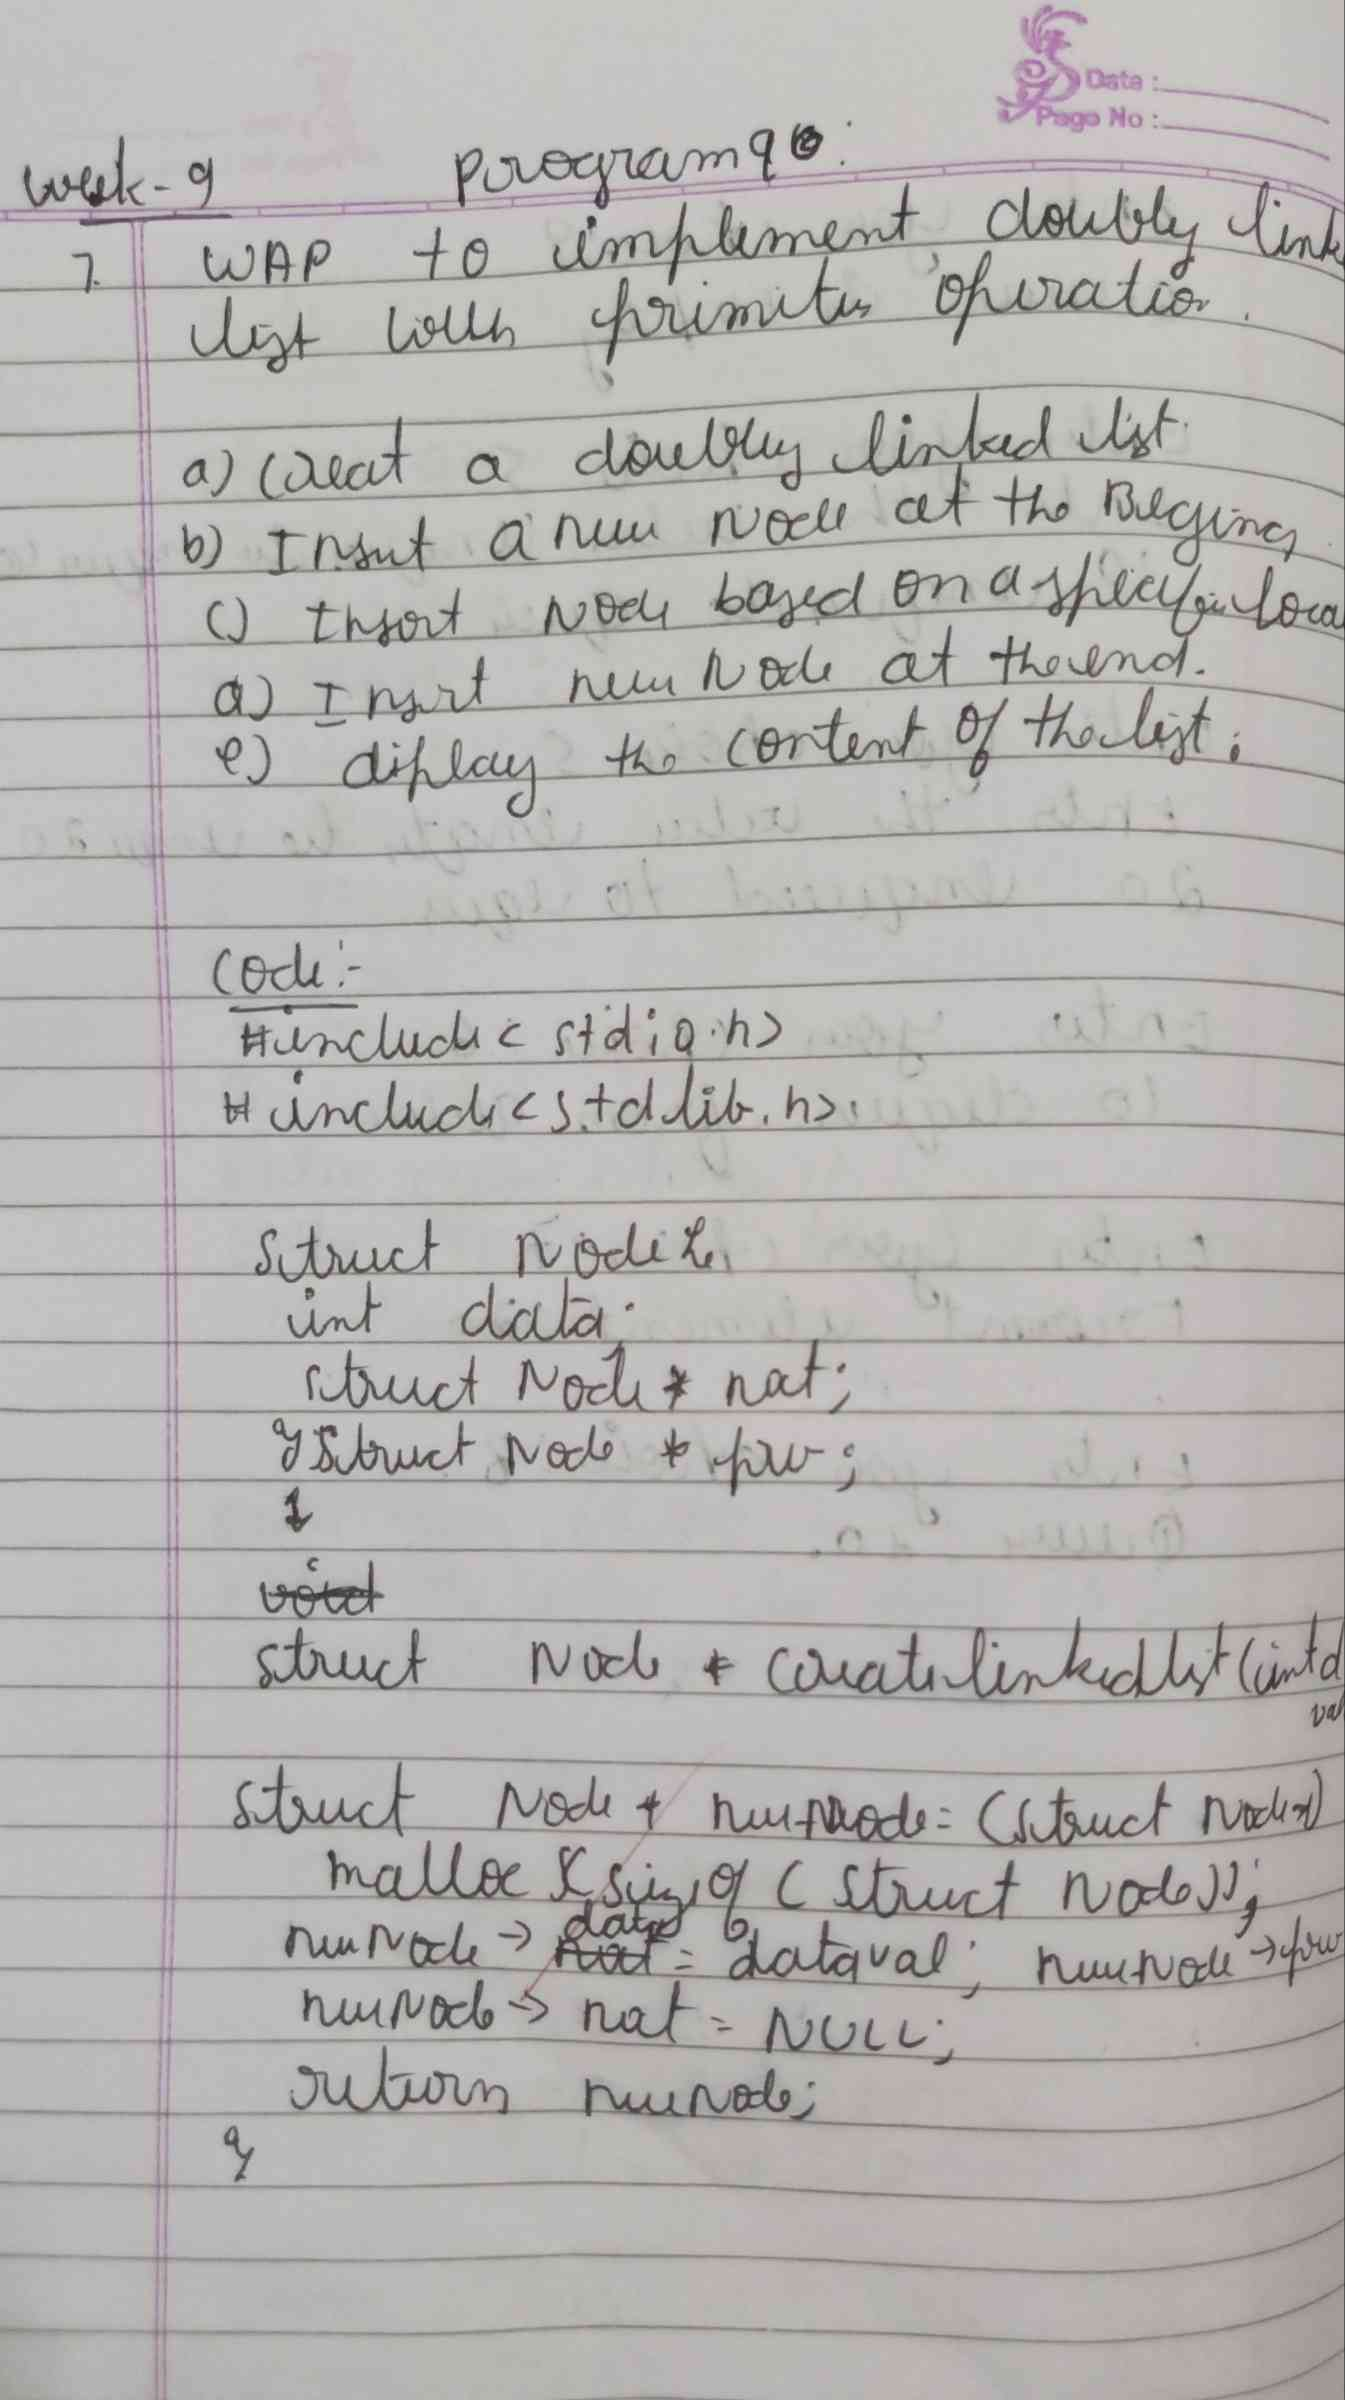 Date :
Page No :
week-9 program 9
7. WAP to implement doubly link
list with primitus operation.
a) Creat a doubly linked list.
b) Insert a new Node at the Begining
c) Insert Node based on a specific loca
d) Insert new Node at the end.
e) diplay the content of the list.
Code:-
#include< stdio.h>
#include<stdlib.h>
struct Node {
int data;
struct Node * next;
} struct Node * prev;
struct Node * createlinkedlist (int d
val
struct Node * newNode = (struct Node*)
malloc (sizeof ( struct Node));
data
newNode -> = dataval; newNode -> prev
newNode -> next = NULL;
return newNode;
}